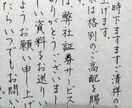 時下ますます清祥
は格別のご高配を賜
弊社証券サービス
し資料をお送り
ようお願い申し上げ
たらいつでもお問い